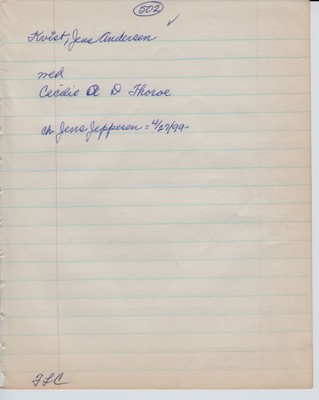 502 ✓
Kvist, Jens Andersen
med
Cecilie A D Thoroe
ch. Jens Jeppesen = 4/27/99-
FLC